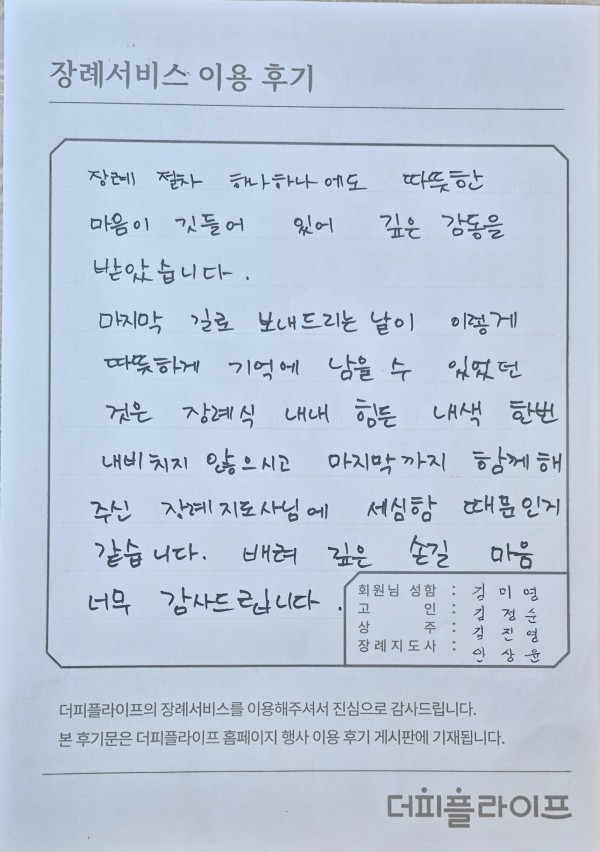 장례서비스 이용 후기
장례 절차 하나하나에도 따뜻한
마음이 깃들어 있어 깊은 감동을
받았습니다.
마지막 길로 보내드리는 날이 이렇게
따뜻하게 기억에 남을 수 있었던
것은 장례식 내내 힘든 내색 한번
내비치지 않으시고 마지막까지 함께해
주신 장례지도사님에 세심함 때문인거
같습니다. 배려 깊은 손길 마음
너무 감사드립니다.
회원님 성함 : 김미영
고 인 : 김정순
상 주 : 김진영
장례지도사 : 안상윤
더피플라이프의 장례서비스를 이용해주셔서 진심으로 감사드립니다.
본 후기문은 더피플라이프 홈페이지 행사 이용 후기 게시판에 기재됩니다.
더피플라이프